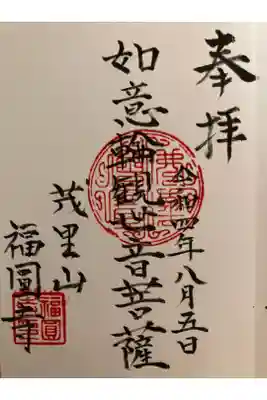 奉拝
令和四年八月五日
如意輪観世音菩薩
茂里山
福圓寺